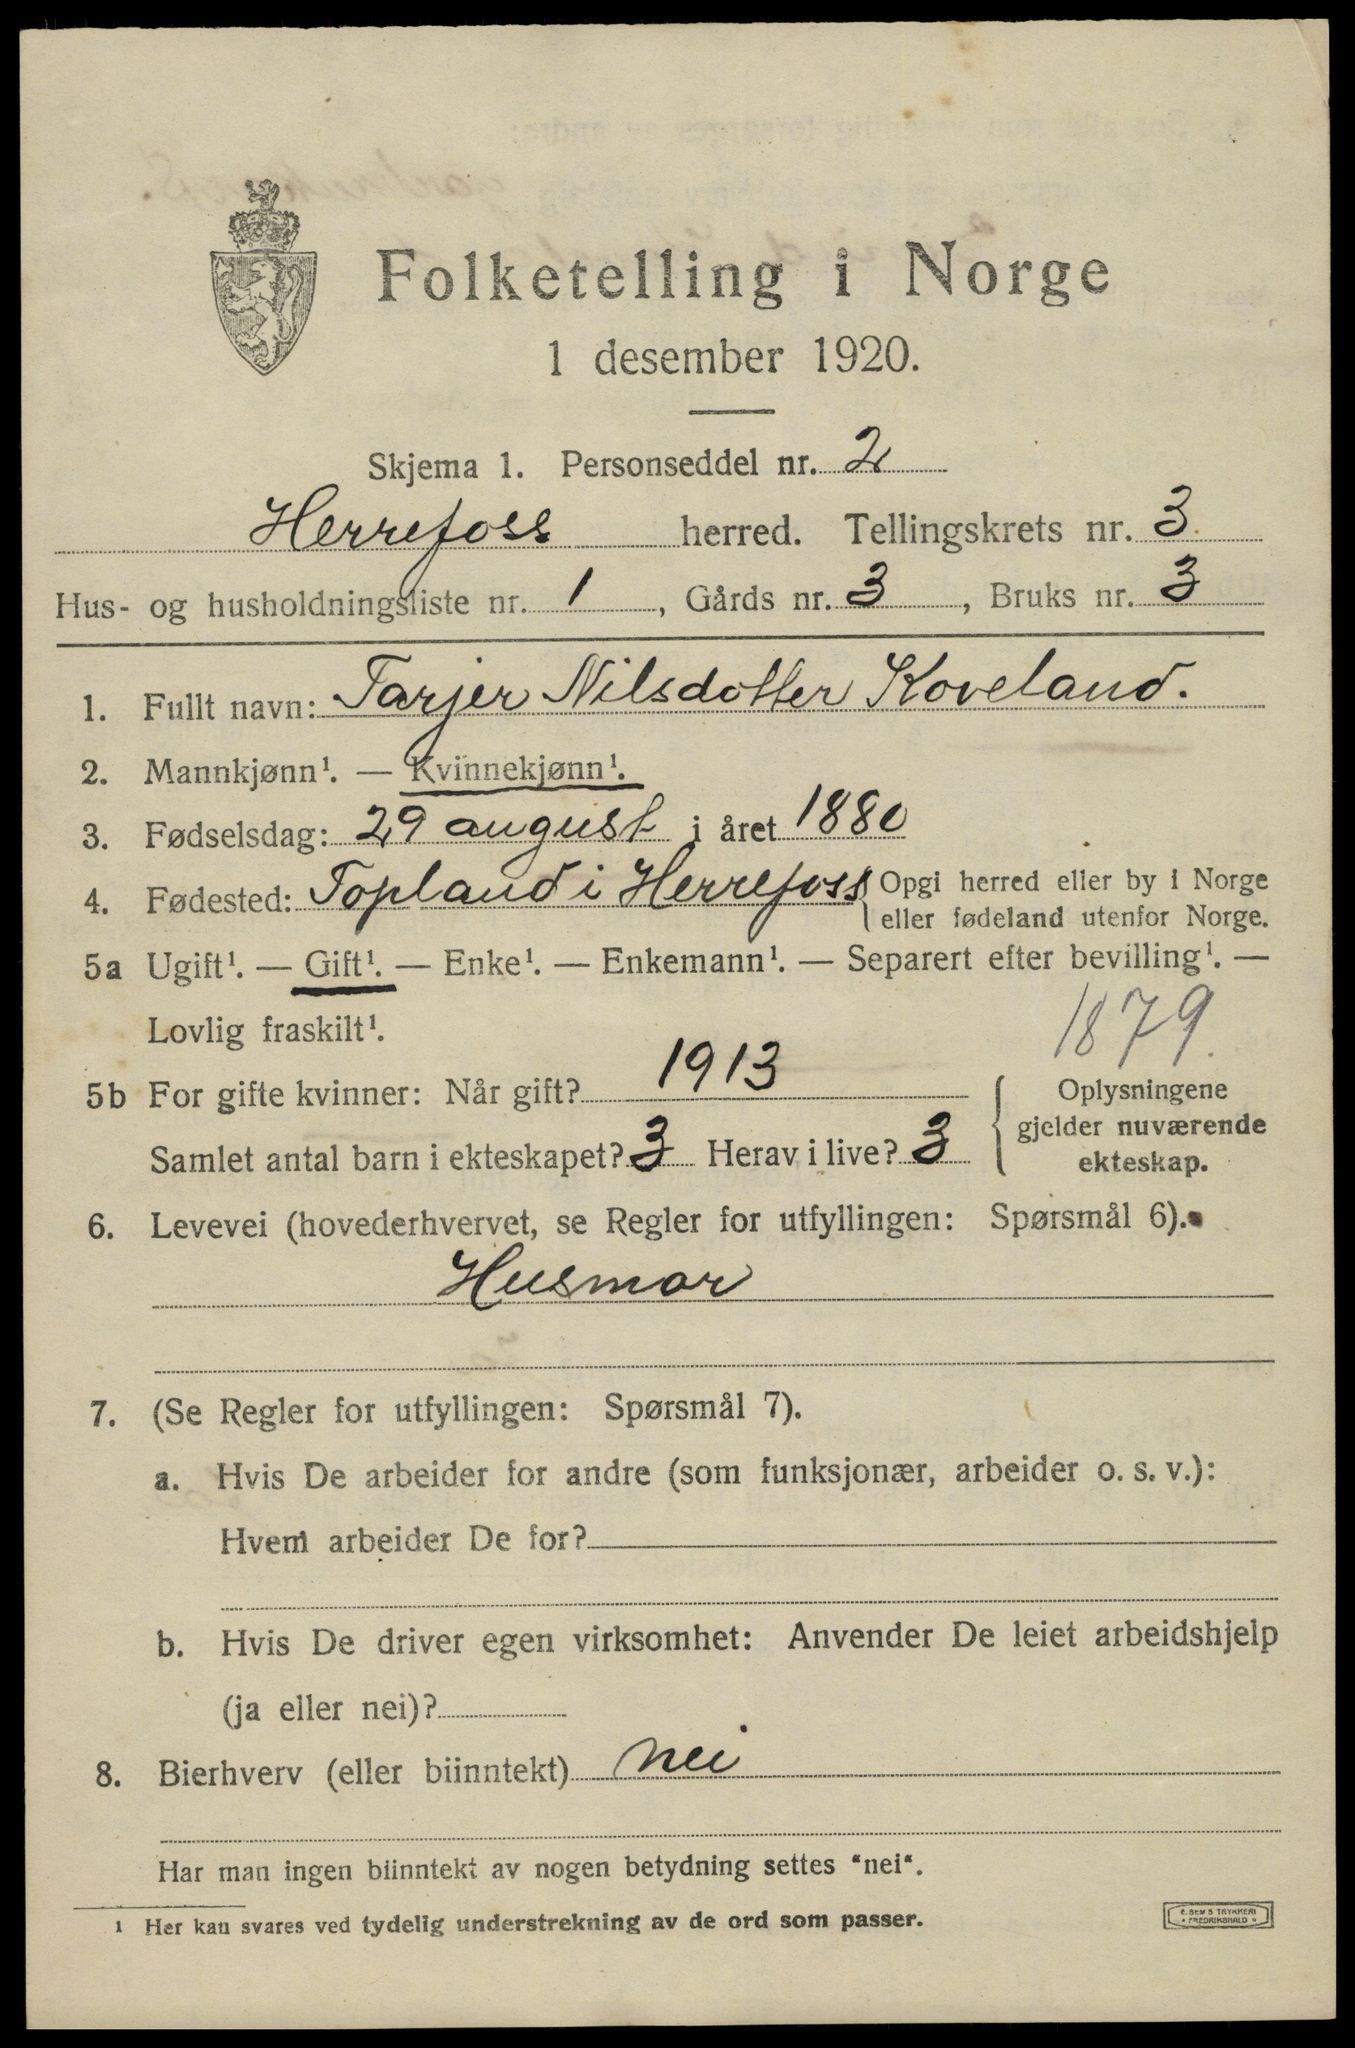 Folketelling i Norge
1 desember 1920.
Skjema 1. Personseddel nr. 2
Herrefoss herred. Tellingskrets nr. 3
Hus- og husholdningsliste nr. 1, Gårds nr. 3, Bruks nr. 3
1. Fullt navn: Tarjer Nilsdotter Koveland.
2. Mannkjønn¹. — Kvinnekjønn¹.
3. Fødselsdag: 29 august i året 1880
4. Fødested: Topland i Herrefoss Opgi herred eller by i Norge
eller fødeland utenfor Norge.
5a Ugift¹. — Gift¹. — Enke¹. — Enkemann¹. — Separert efter bevilling¹. —
Lovlig fraskilt¹.
1879.
5b For gifte kvinner: Når gift? 1913
Samlet antal barn i ekteskapet? 3 Herav i live? 3
Oplysningene
gjelder nuværende
ekteskap.
6. Levevei (hovederhvervet, se Regler for utfyllingen: Spørsmål 6).
Husmor
7. (Se Regler for utfyllingen: Spørsmål 7).
a. Hvis De arbeider for andre (som funksjonær, arbeider o. s. v.):
Hvem arbeider De for?
b. Hvis De driver egen virksomhet: Anvender De leiet arbeidshjelp
(ja eller nei)?
8. Bierhverv (eller biinntekt) nei
Har man ingen biinntekt av nogen betydning settes "nei".
¹ Her kan svares ved tydelig understrekning av de ord som passer.
E. SEM'S TRYKKERI
* FREDRIKSHALD *